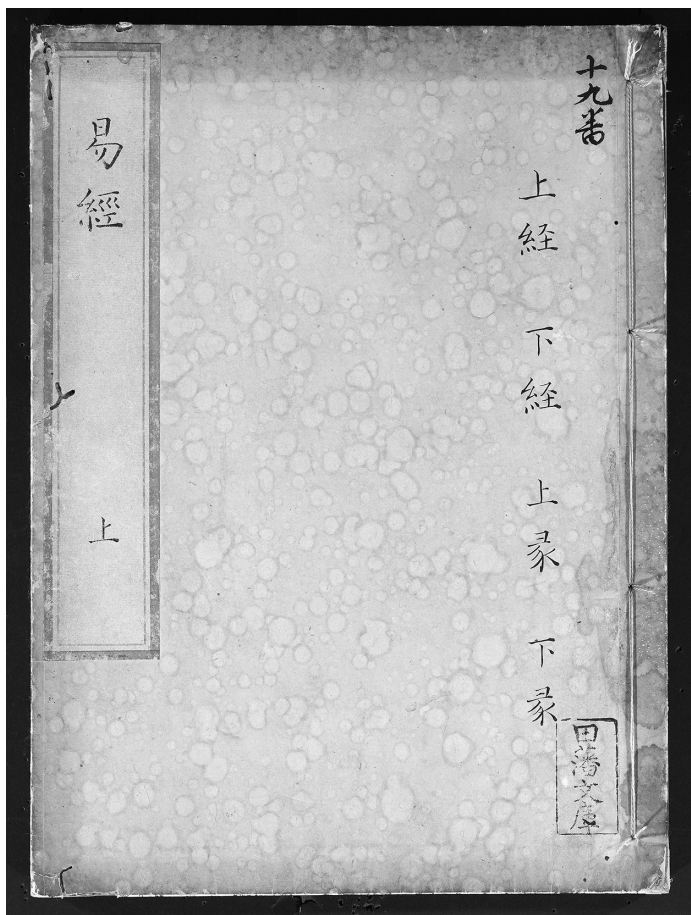 十九番
上経　下経　上彖　下彖
田藩文庫
易經　上